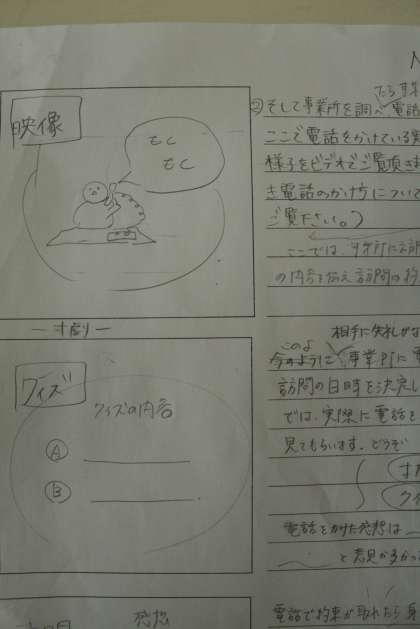 映像
もし
もし
―寸劇―
クイズ
クイズの内容
Ⓐ
Ⓑ
感想
たら
②そして事業所を調べ電話
ここで電話をかけている
様子をビデオでご覧頂きま
き電話のかけ方について
ご覧下さい。)
ここでは、
の内容を伝え訪問の
相手に失礼がな
このよ
今のように事業所に
訪問の日時を決定し
では、実際に電話を
見てもらいます。どうぞ
クイ
電話をかけた感想は
と意見が多かっ
電話で約束が取れたら